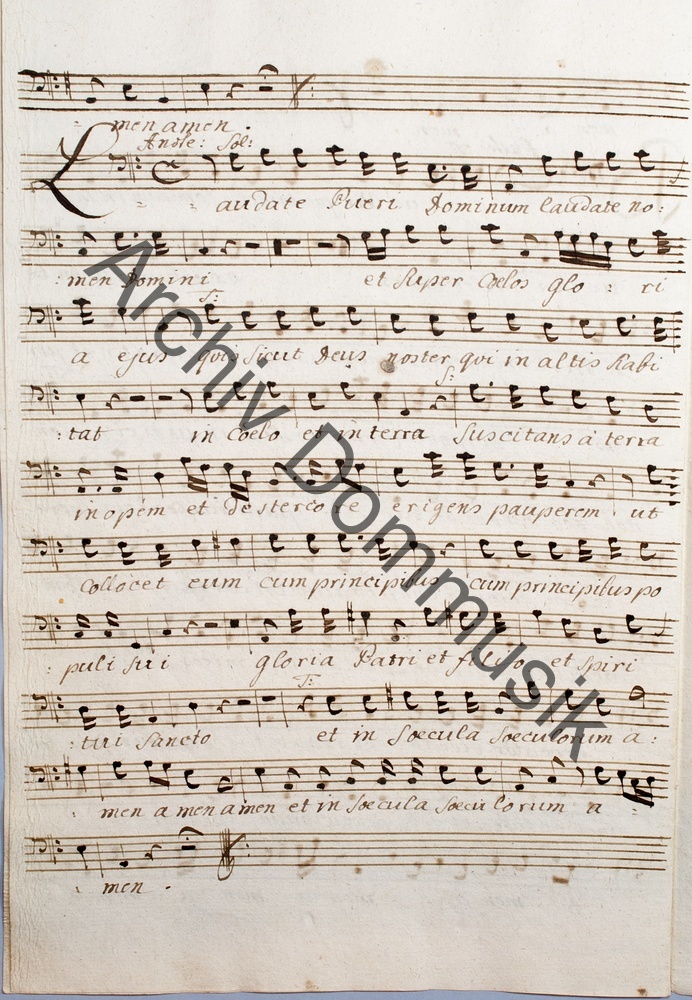 men amen.
Andte: Sol:
Laudate Pueri Dominum laudate no:
:men Domini et super Coelos glo : ri
T:
a ejus quis sicut Deus noster qui in altis habi
S:
:tat in Coelo et in terra suscitans a terra
inopem et de stercore erigens pauperem ut
Collocet eum cum principibus cum principibus po
:puli sui gloria Patri et filio et spiri
T:
:tui Sancto et in Soecula Soeculorum a:
:men a men amen et in soecula soeculorum a
:men.
Archiv Dommusik